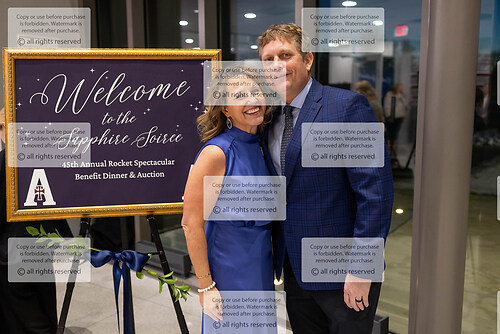 Welcome
to the
Sapphire Soirée
45th Annual Rocket Spectacular
Benefit Dinner & Auction
A
Copy or use before purchase
is forbidden. Watermark is
removed after purchase.
© all rights reserved
Copy or use before purchase
is forbidden. Watermark is
removed after purchase.
© all rights reserved
Copy or use before purchase
is forbidden. Watermark is
removed after purchase.
© all rights reserved
Copy or use before purchase
is forbidden. Watermark is
removed after purchase.
© all rights reserved
Copy or use before purchase
is forbidden. Watermark is
removed after purchase.
© all rights reserved
Copy or use before purchase
is forbidden. Watermark is
removed after purchase.
© all rights reserved
Copy or use before purchase
is forbidden. Watermark is
removed after purchase.
© all rights reserved
Copy or use before purchase
is forbidden. Watermark is
removed after purchase.
© all rights reserved
Copy or use before purchase
is forbidden. Watermark is
removed after purchase.
© all rights reserved